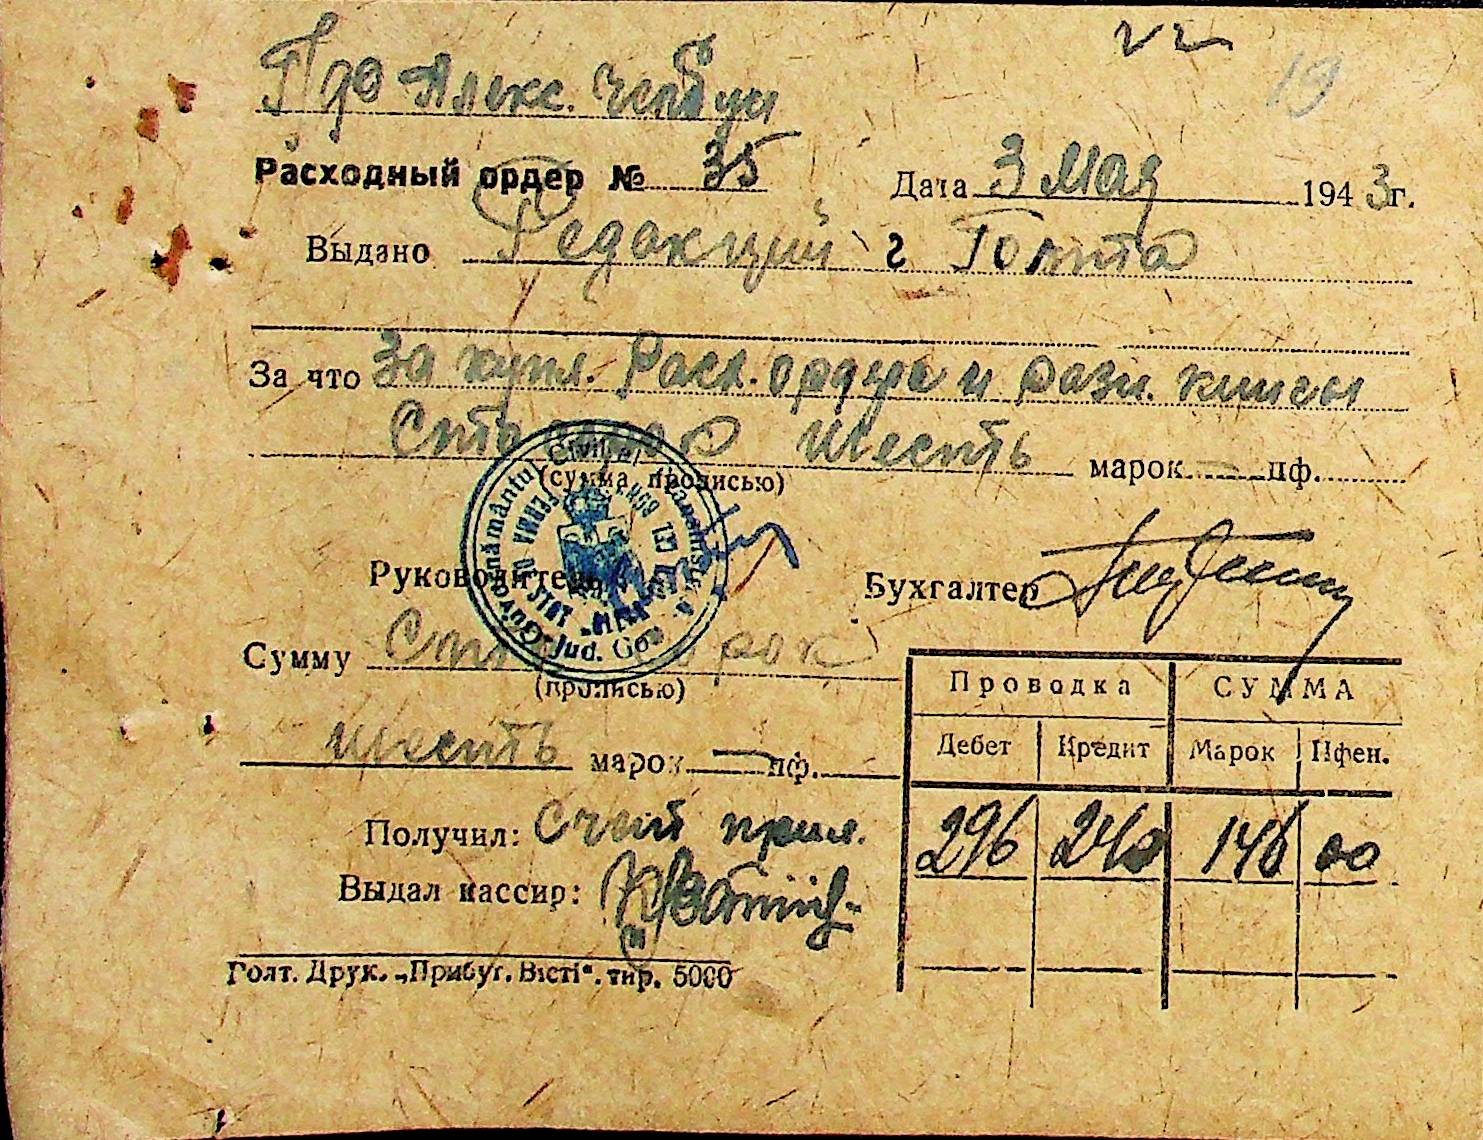 22
19
Алекс.
Расходный ордер № 35 Дата 3 Мая 1943г.
Выдано Редакций г Голта
За что За купл. Расх. ордера и разн. книги
Сто сорок шесть марок — пф.
(сумма прописью)
Guvernământul Civil al Transnistriei
Jud. Golta
FERMA DE STAT
Руководитель Бухгалтер
Сумму Сто сорок
(прописью)
шесть марок — пф.
Проводка СУММА
Дебет Кредит Марок Пфен.
296 240 146 00
Получил: Счет прил.
Выдал кассир:
Голт. Друк. „Прибуг. Вісті“. тир. 5000